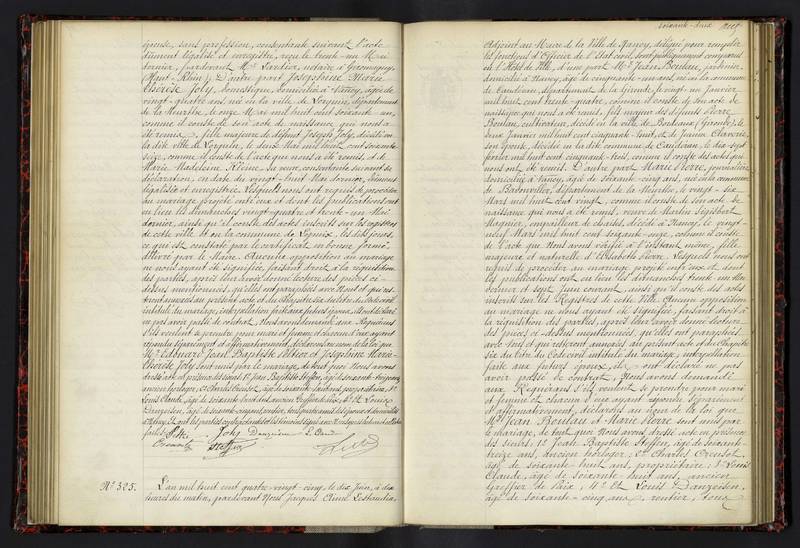 épouse, sans profession, consentante suivant acte
dûment légalisé et enregistré, reçu le trente-un Mai
dernier, pardevant Me notaire à Giromagny,
(Haut-Rhin); D'autre part Joséphine Marie
Thérèse Joly, domestique, domiciliée à Nancy, âgée de
vingt-quatre ans, née en la ville de Lorquin, département
de la Meurthe, le onze Mai mil huit cent soixante un,
comme il conste de son acte de naissance qui nous a
été remis, fille majeure de défunt Joseph Joly, décédé en
la dite ville de Lorquin, le deux Mai mil huit cent soixante
seize, comme il conste de l'acte qui nous a été remis, et de
Marie Madeleine sa veuve, consentante suivant sa
déclaration, en date du vingt-huit Mai dernier, dûment
légalisée et enregistrée. Lesquels nous ont requis de procéder
au mariage projeté entr'eux et dont les publications ont
eu lieu les dimanches vingt-quatre et trente-un Mai
dernier, ainsi qu'il conste des actes inscrits sur les registres
de cette ville et de la commune de les dits jours,
ce qui est constaté par le certificat en bonne forme
délivré par le Maire. Aucune opposition au mariage
ne nous ayant été signifiée, faisant droit à la réquisition
des parties, après leur avoir donné lecture des pièces ci-
dessus mentionnées, qu'elles ont paraphées avec Nous et qui res-
teront annexées au présent acte et du chapitre six du titre du Code civil
intitulé du mariage, interpellation faite aux futurs époux, ils ont déclaré
ne pas avoir passé de contrat. Nous avons demandé aux Requérans
s'ils veulent se prendre pour mari et femme et chacun d'eux ayant
répondu séparément et affirmativement, déclarons au nom de la loi que
Mr Edouard Jean Baptiste et Joséphine Marie
Thérèse Joly sont unis par le mariage, de tout quoi Nous avons
dressé acte en présence des sieurs 1° Jean Baptiste Steffen, âgé de soixante-treize ans,
ancien horloger, 2° Charles Creusot, âgé de soixante-huit ans, propriétaire, 3°
Louis Claude, âgé de soixante-huit ans, ancien Greffier de Paix, 4° et Louis
Danzeisen, âgé de soixante-cinq ans, rentier, tous
Joly Danzeisen
Creusot Steffen
N° 325. L'an mil huit cent quatre-vingt-cinq, le dix Juin, à dix
heures du matin, pardevant Nous Jacques Aimé
soixante-deux
Adjoint au Maire de la Ville de Nancy, délégué pour remplir
les fonctions d'Officier de l'Etat civil, sont publiquement comparus
en l'Hôtel de Ville, d'une part Mr Jean Boulau,
domicilié à Nancy, âgé de cinquante-un ans, né en la commune
de Caudéran, département de la Gironde, le vingt-un Janvier
mil huit cent trente-quatre, comme il conste de son acte de
naissance qui nous a été remis, fils majeur des défunts Pierre
Boulau, cultivateur, décédé en la ville de Bordeaux (Gironde), le
deux Janvier mil huit cent cinquante-huit, et de Jeanne
son épouse, décédée en la dite commune de Caudéran, le dix-sept
Février mil huit cent cinquante-trois, comme il conste des actes qui
nous ont été remis. D'autre part Marie Pierre, journalière
domiciliée à Nancy, âgée de soixante-cinq ans, née en la commune
de Badonviller, département de la Meurthe, le vingt-six
Mars mil huit cent vingt, comme il conste de son acte de
naissance qui nous a été remis, veuve de Martin Sigisbert
Magnier, empailleur de chaises, décédé à Nancy, le vingt-
neuf Mars mil huit cent soixante-onze, comme il conste
de l'acte que Nous avons vérifié à l'instant même, fille
majeure et naturelle d'Elisabeth Pierre. Lesquels nous ont
requis de procéder au mariage projeté entr'eux et dont
les publications ont eu lieu les dimanches trente-un Mai
dernier et sept Juin courant, ainsi qu'il conste des actes
inscrits sur les Registres de cette Ville. Aucune opposition
au mariage ne nous ayant été signifiée, faisant droit à
la réquisition des parties, après leur avoir donné lecture
des pièces ci-dessus mentionnées, qu'elles ont paraphées
avec Nous et qui resteront annexées au présent acte et du Chapitre
six du titre du Code civil intitulé du mariage, interpellation
faite aux futurs époux, ils ont déclaré ne pas
avoir passé de contrat. Nous avons demandé
aux Requérans s'ils veulent se prendre pour mari
et femme et chacun d'eux ayant répondu séparément
et affirmativement, déclarons au nom de la loi que
Mr Jean Boulau et Marie Pierre sont unis par
le mariage, de tout quoi Nous avons dressé acte en présence
des sieurs: 1° Jean Baptiste Steffen, âgé de soixante-
treize ans, ancien horloger; 2° Charles Creusot,
âgé de soixante-huit ans, propriétaire; 3° Louis
Claude, âgé de soixante-huit ans, ancien
Greffier de Paix, 4° et Louis Danzeisen,
âgé de soixante-cinq ans, rentier, tous